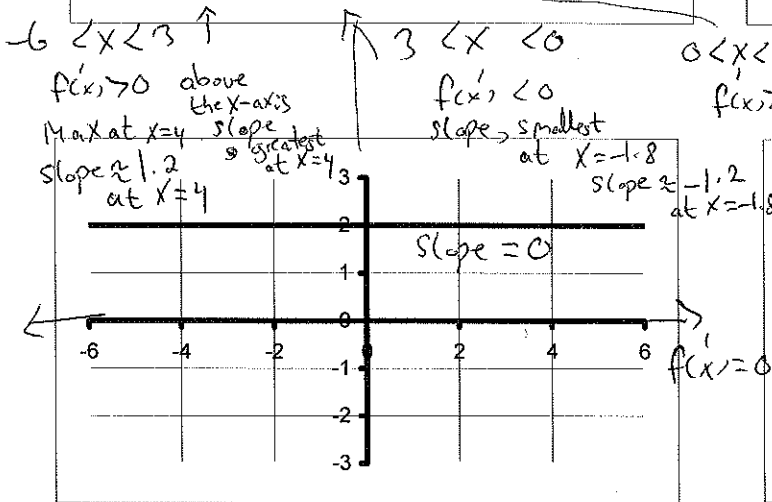 -6 < x < 3
f'(x) > 0 above
the x-axis
Max at x=4 slope
greatest
at x=4
slope ≈ 1.2
at x=4
3 < x < 0
f'(x) < 0
slope, smallest
at x=-1.8
slope ≈ -1.2
at x=-1.8
0 < x <
f'(x)
3
2
1
0
-1
-2
-3
slope = 0
-6 -4 -2 0 2 4 6
f'(x) = 0